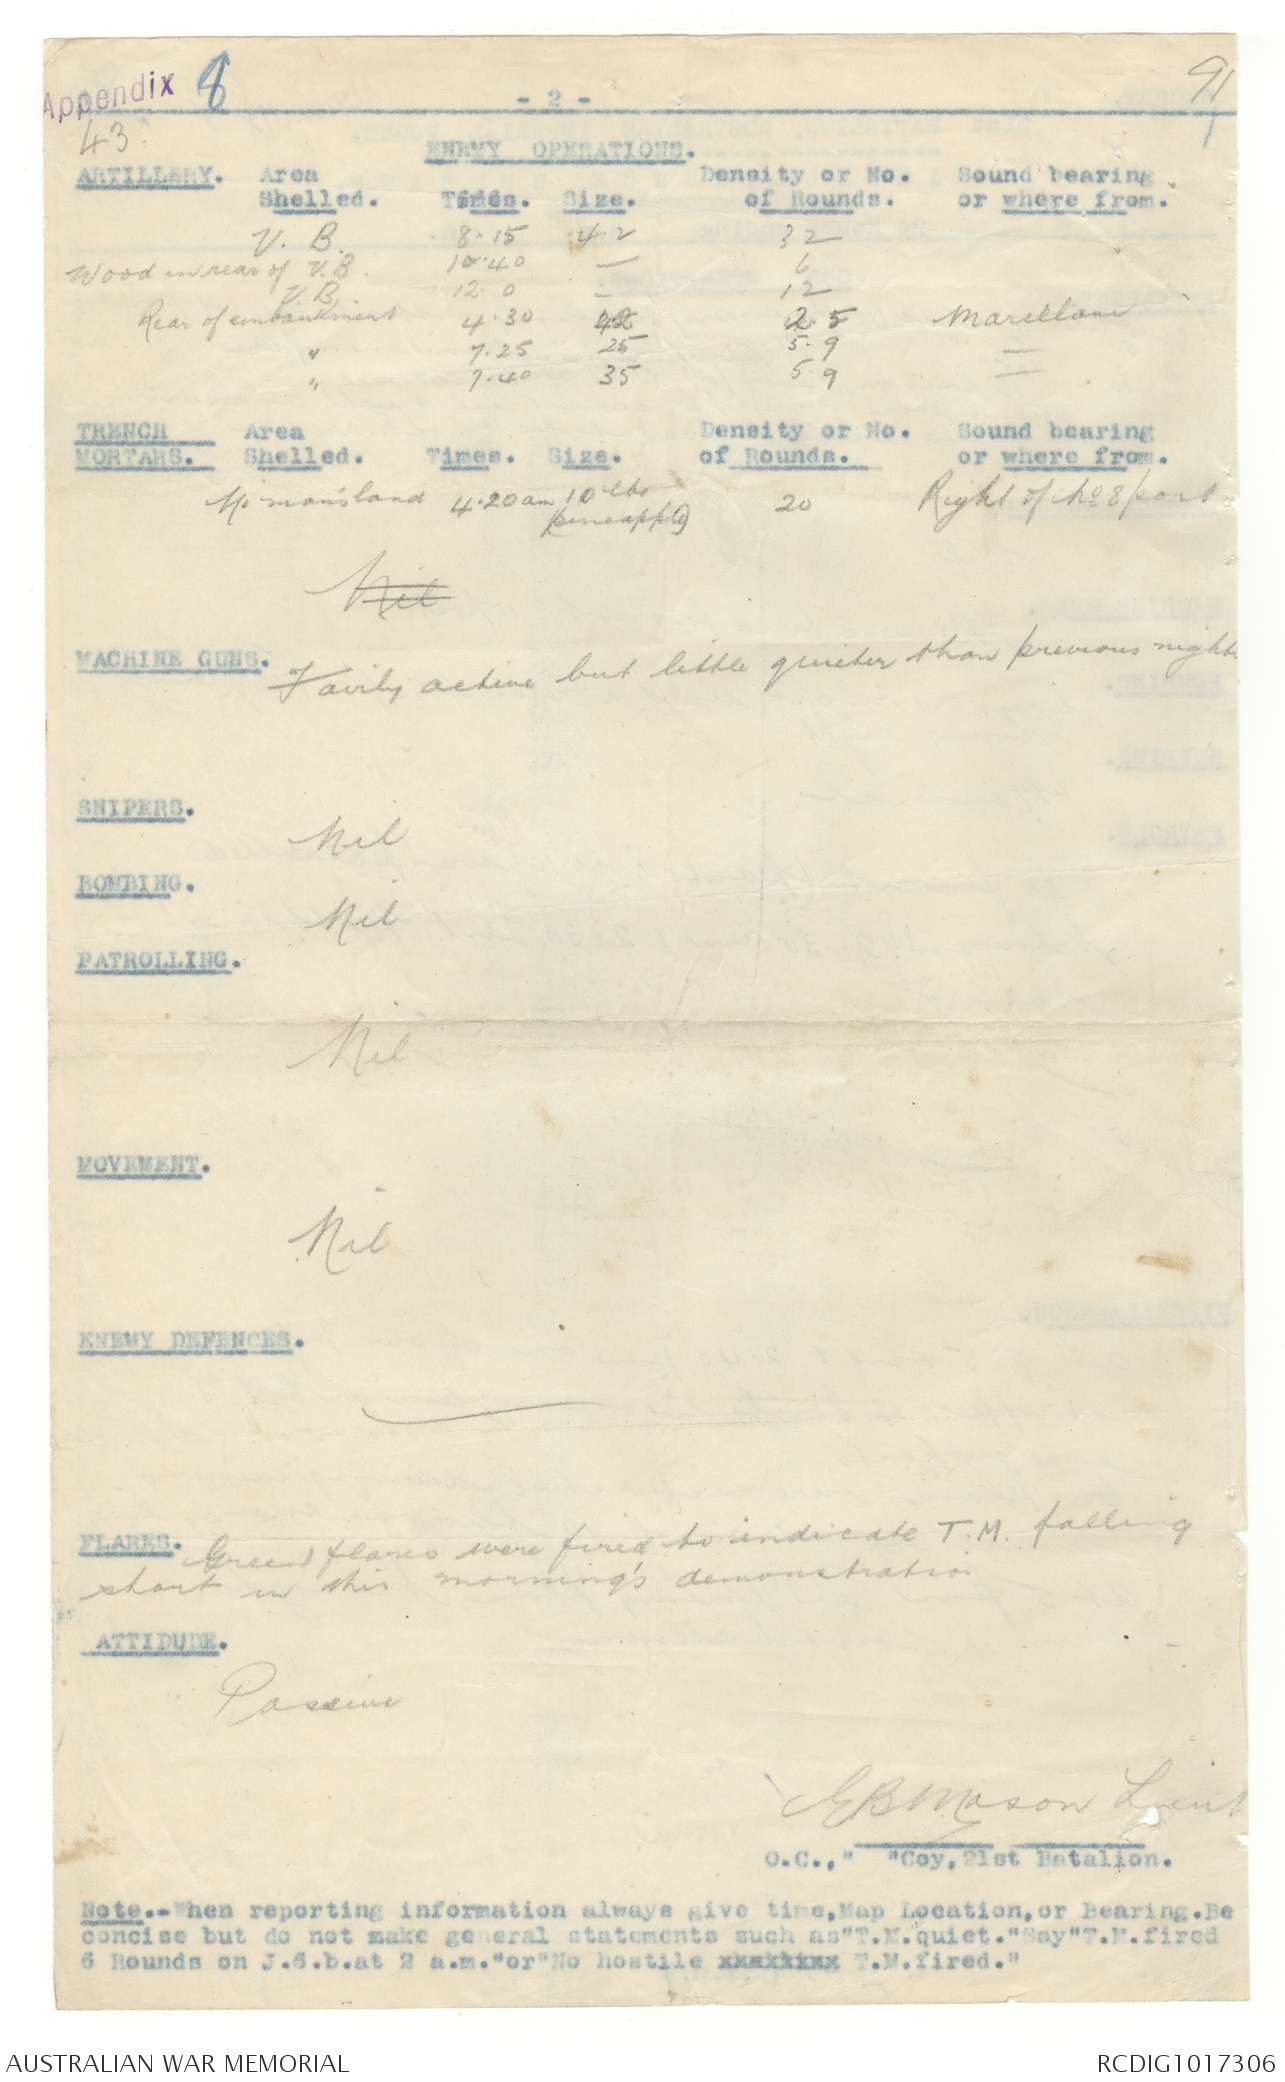 Appendix 8
- 2 -
91
1
43.
ENEMY OPERATIONS.
ARTILLERY. Area Shelled. Times. Size. Density or No. of Rounds. Sound bearing or where from.
V. B. 8.15 4.2 32
Wood in rear of V.B. 10.40 — 6
V.B. 12.0 — 12
Rear of embankment 4.30 42 25
" 7.25 25 5.9 —
" 7.40 35 5.9 —
TRENCH MORTARS. Area Shelled. Times. Size. Density or No. of Rounds. Sound bearing or where from.
No man's land 4.20 am 10 lbs 20 Right of No 8 post
(pineapple)
Nil
MACHINE GUNS. Fairly active but little quieter than previous nights
SNIPERS.
Nil
BOMBING.
Nil
PATROLLING.
Nil
MOVEMENT.
Nil
ENEMY DEFENCES.
FLARES. Green flares were fired to indicate T.M. falling
short in this morning's demonstration
ATTIDUDE.
Passive
EB Mason Lieut
O.C.," "Coy,21st Batalion.
Note.-When reporting information always give time,Map Location,or Bearing.Be
concise but do not make general statements such as"T.M.quiet."Say"T.M.fired
6 Rounds on J.6.b.at 2 a.m."or"No hostile xxxxxxxx T.M.fired."
AUSTRALIAN WAR MEMORIAL
RCDIG1017306